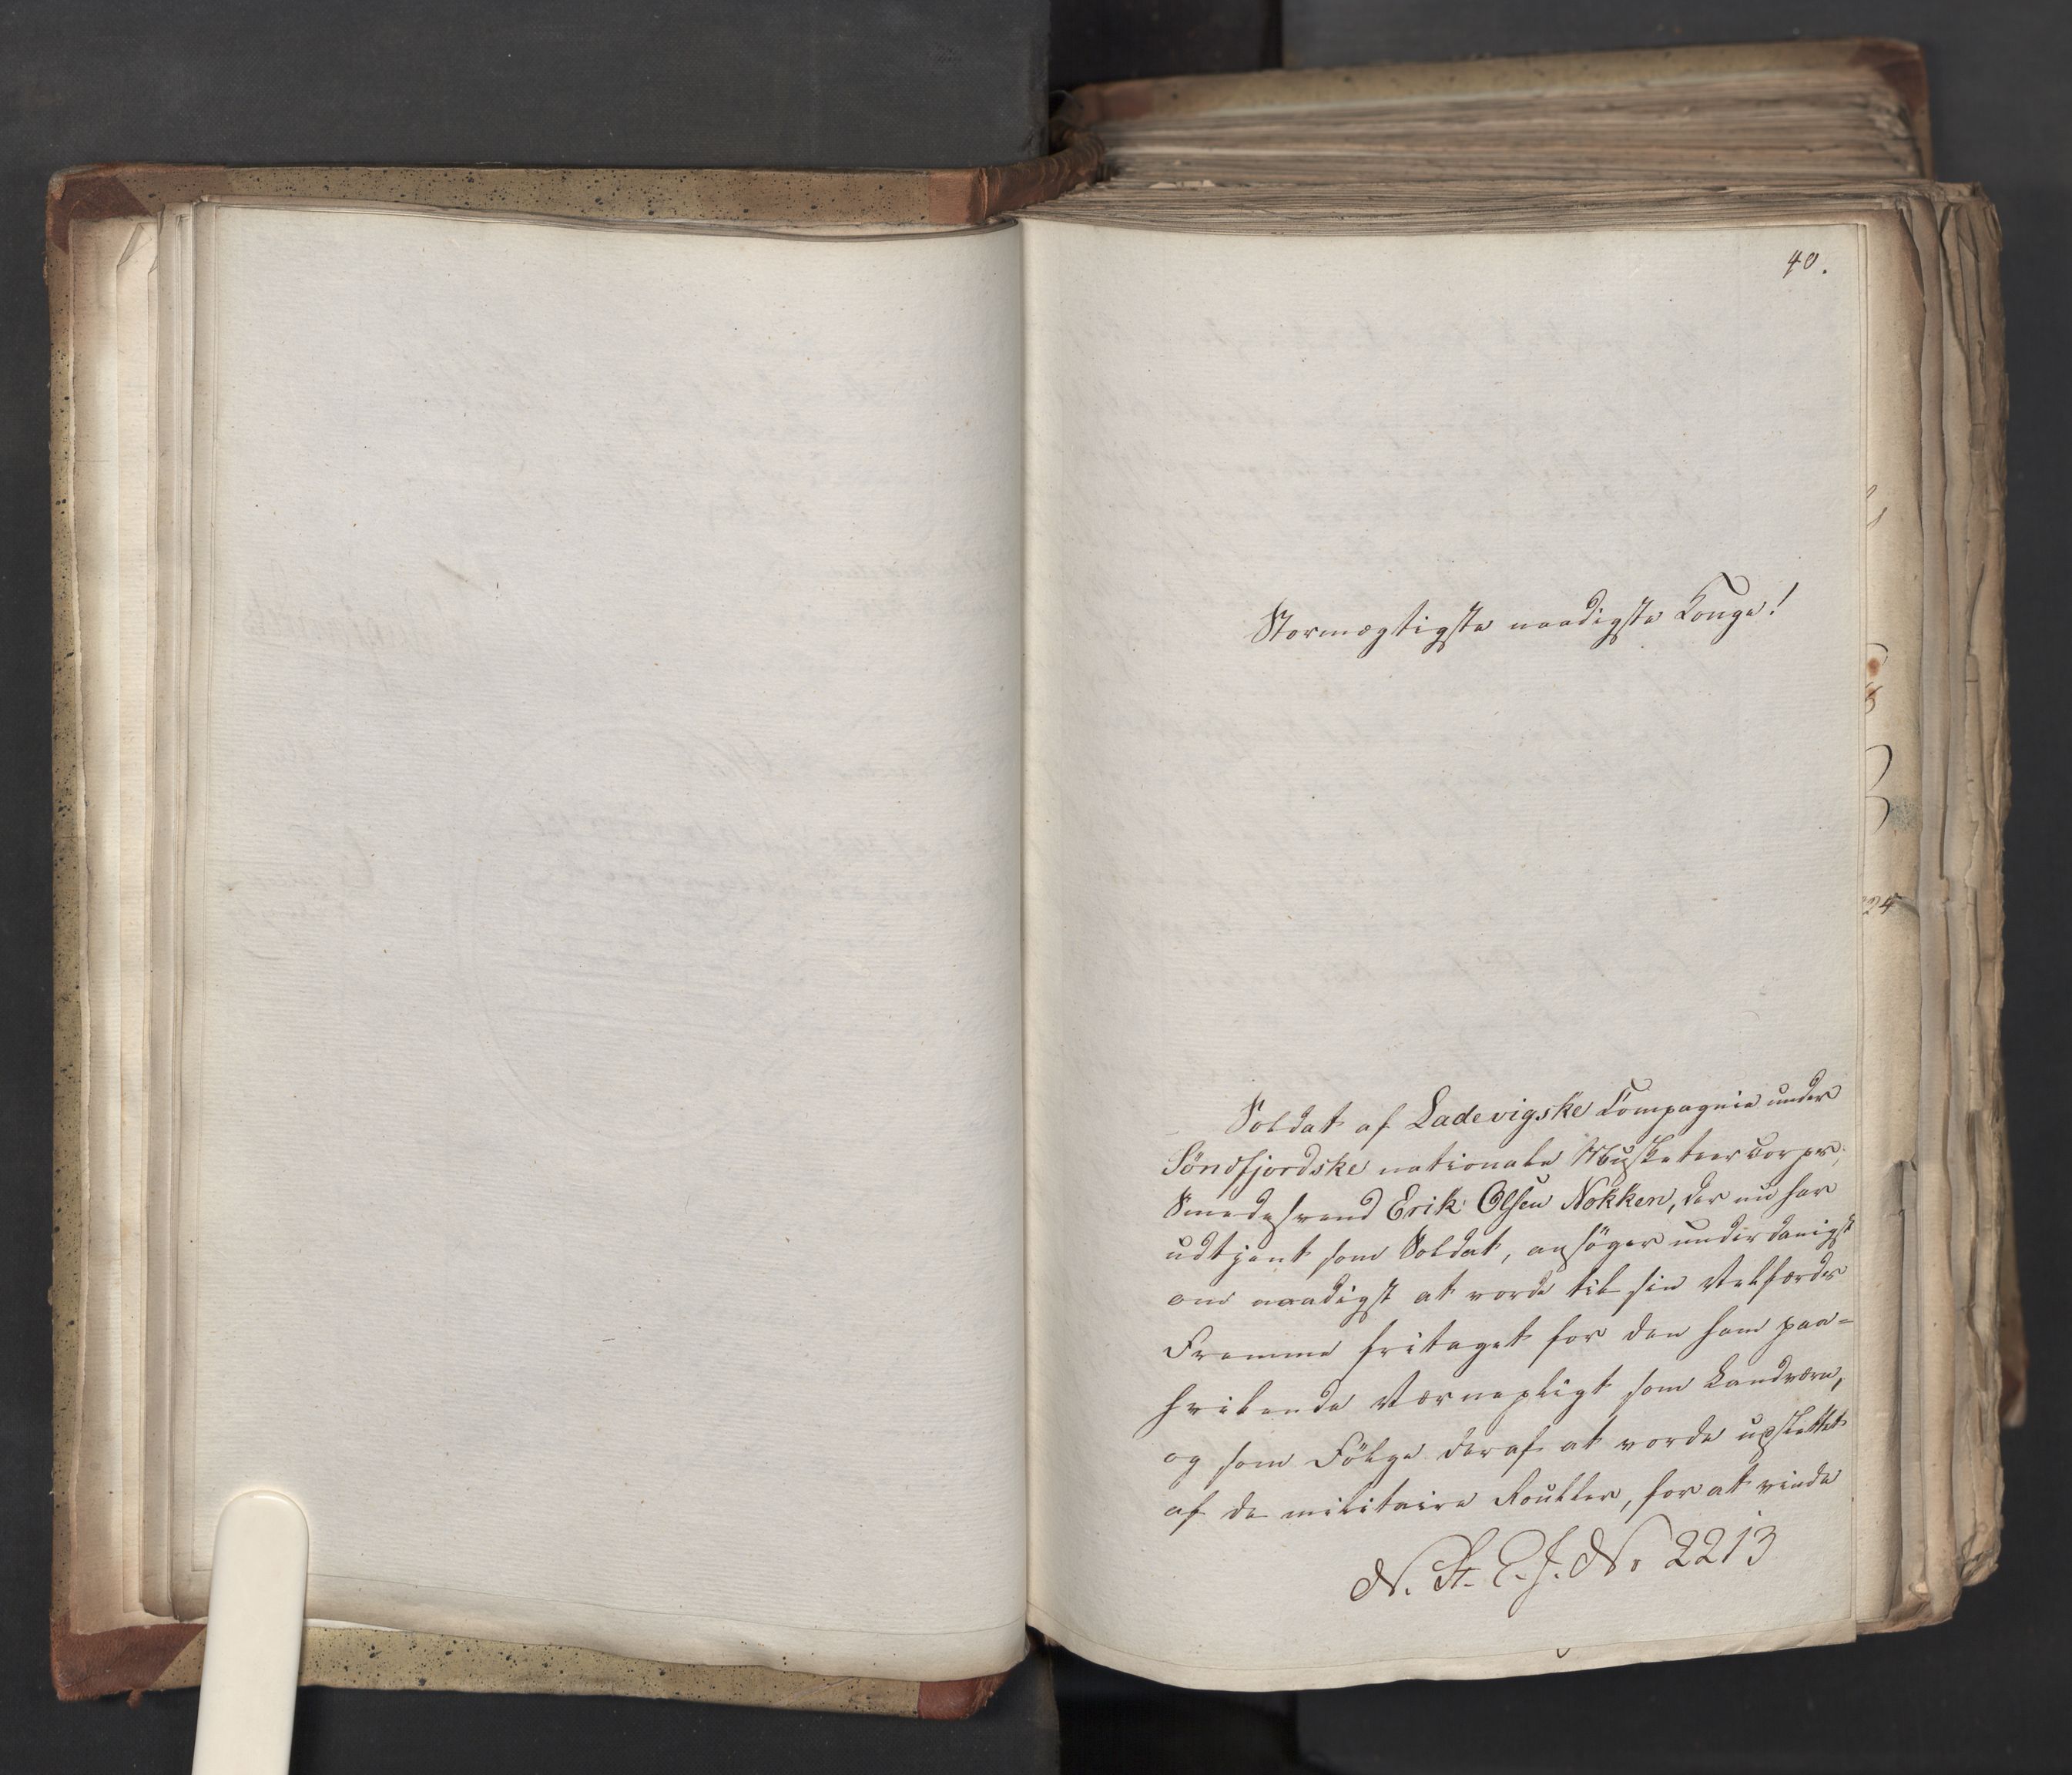 40.
Stormægtigste naadigste Konge!
Soldat af Ladevigske Compagnie under
Söndfjordske nationale Musketeercorps,
Smedesvend Erik Olsen Nokken, der nu har
udtjent som Soldat, ansöger underdanigst
om naadigst at vorde til sin Velfærds
Fremme fritaget for den ham paa=
hvilende Værnepligt som Landværn,
og som Fölge deraf at vorde udslettet
af de militaire Rouller, for at vinde
N. St. E. J. No 2213
224